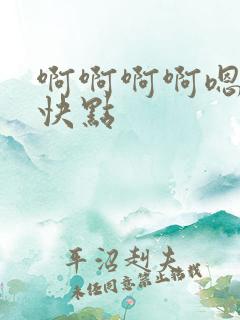 啊啊啊啊嗯
快點
平沼赳夫
未经同意禁止转载